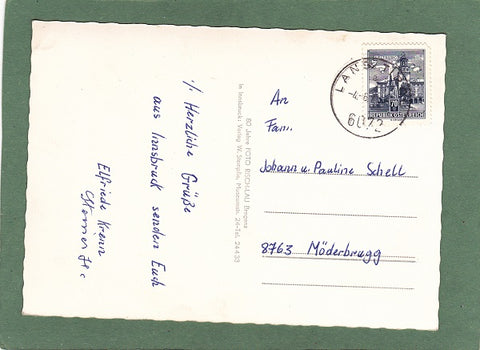 % Herzliche Grüße
aus Innsbruck senden Euch
Elfriede Krenn
80 Jahre FOTO RISCH-LAU Bregenz
In Innsbruck: Verlag W. Stempfle, Museumstr. 24 - Tel. 24433
LANS
6072
REPUBLIK ÖSTERREICH
An
Fam.
Johann u. Pauline Schell
8763 Möderbrugg